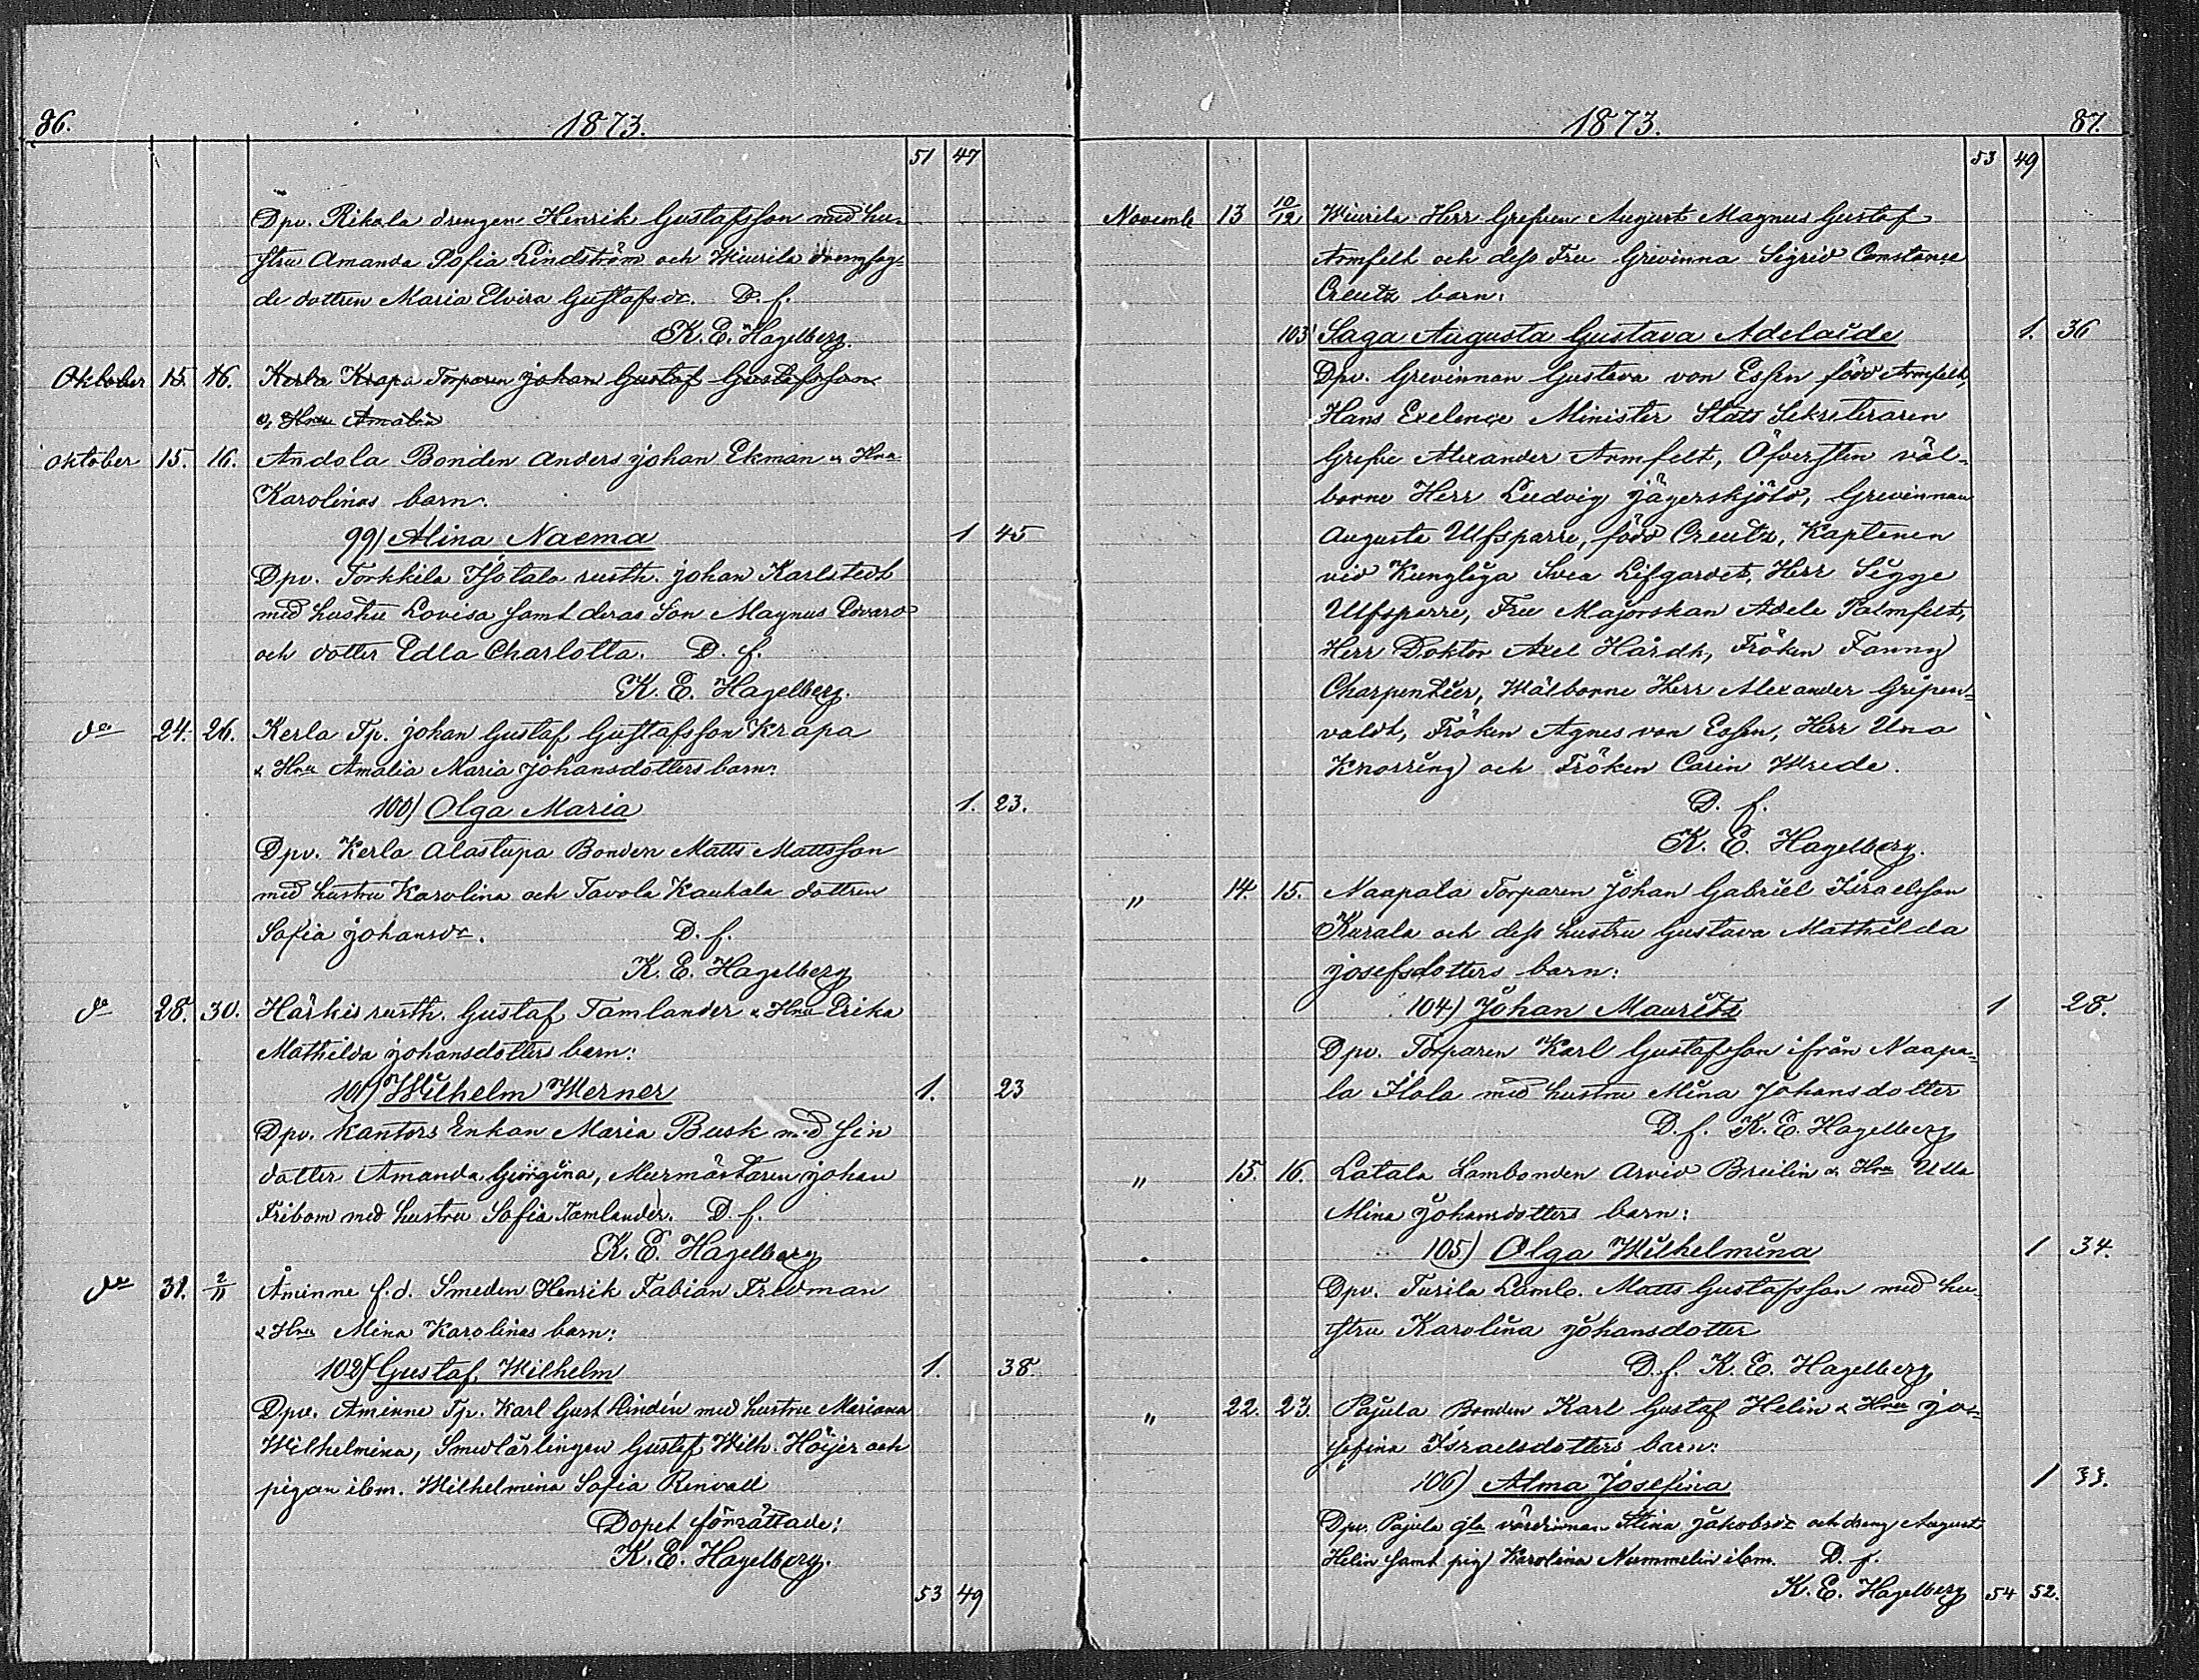 86. 1873.
51 47
Dpv. Rikala drengen Henrik Gustafsson med hu-
stru Amanda Sofia Lindström och Wiurila
de dottren Maria Elvira Gustafsdr. D. f.
K. E. Hagelberg.
Oktober 15. 16. Kerla Krapa Torparen Johan Gustaf Gustafsson
& Hru Amalia
Oktober 15. 16. Andola Bonden Anders Johan Ekman & Hru
Karolinas barn.
99) Alina Naema 1 45
Dpv. Torkkila Isotalo rusth. Johan Karlstedt
med hustru Lovisa samt deras Son Magnus Edvard
och dotter Edla Charlotta. D. f.
K. E. Hagelberg.
do 24. 26. Kerla Tp. Johan Gustaf Gustafsson Krapa
& Hru Amalia Maria Johansdotters barn:
100) Olga Maria 1. 23.
Dpv. Kerla Alastupa Bonden Matts Mattsson
med hustru Karolina och Tavola Kauhala dottren
Sofia Johansdr. D. f.
K. E. Hagelberg
do 28. 30. Härkis rusth. Gustaf Tamlander & Hru Erika
Mathilda Johansdotters barn:
101) Wilhelm Werner 1. 23
Dpv. Kantors Enkan Maria Busk med sin
dotter Amanda Georgina, Murmästaren Johan
Fribom med hustru Sofia Tamlander. D. f.
K. E. Hagelberg
do 31. 2/11 Åminne f.d. Smeden Henrik Fabian Fredman
& Hru Mina Karolinas barn:
102) Gustaf Wilhelm 1. 38.
Dpv. Åminne Tp. Karl Gust Lindén med hustru Mariana
Wilhelmina, Smedlärlingen Gustaf Wilh. Höijer och
pigan ibm. Wilhelmina Sofia Renvall
Dopet förrättade:
K. E. Hagelberg.
53 49
1873. 87.
53 49
Novemb 13 10/12 Wiurila Herr Grefven August Magnus Gustaf
Armfelt och dess Fru Grevinna Sigrid Constance
Creutz barn:
103) Saga Augusta Gustava Adelaide 1. 36
Dpv. Grevinnan Gustava von Essen född Armfelt,
Hans Exelence Minister Stats Sekreteraren
Grefve Alexander Armfelt, Öfversten väl-
borne Herr Ludvig Jägerskjöld, Grevinnan
Augusta Ulfsparre, född Creutz, Kaptenen
vid Kungliga Svea Lifgardet, Herr Sigge
Ulfsparre, Fru Majorskan Adele Palmfelt,
Herr Doktor Axel Hårdh, Fröken Fanny
Charpentier, Wälborne Herr Alexander Gripen-
valdt, Fröken Agnes von Essen, Herr Uno
Knorring och Fröken Carin Wrede.
D. f.
K. E. Hagelberg.
" 14. 15. Naapala Torparen Johan Gabriel Israelsson
Kurala och dess hustru Gustava Mathilda
Josefsdotters barn:
104) Johan Mauritz 1 28.
Dpv. Torparen Karl Gustafsson ifrån Naapa-
la Ilola med hustru Mina Johansdotter
D. f. K. E. Hagelberg
" 15. 16. Latala Lambonden Arvid Breilin & Hru Ulla
Mina Johansdotters barn:
105) Olga Wilhelmina 1 34.
Dpv. Turila Lamb. Matts Gustafsson med hu-
stru Karolina Johansdotter
D. f. K. E. Hagelberg
" 22. 23. Pajula Bonden Karl Gustaf Helin & Hru Jo-
sefina Israelsdotters barn:
106) Alma Josefina 1 33.
Dpv. Pajula gla värdinnan Stina Jakobsdr och dreng August
Helin samt pig. Karolina Nummelin ibm. D. f.
K. E. Hagelberg 54 52.